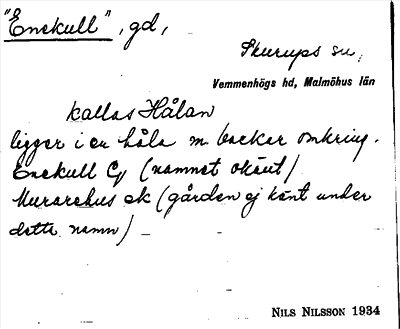 "Enekull", gd,
Skurups sn,
Vemmenhögs hd, Malmöhus län
kallas Hålan
ligger i en håla m backar omkring.
Enekull Cy (namnet okänt)
Murarehus ek (gården ej känt under
detta namn)
NILS NILSSON 1934